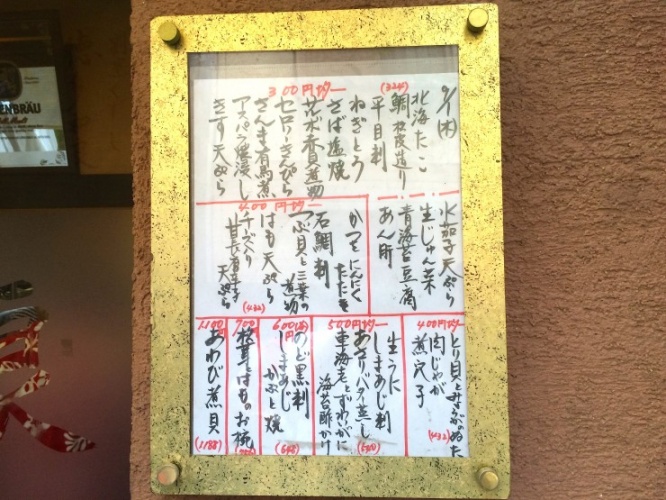 9/1(木)
300円均一
(324)
北海たこ
鯛松皮造り
平目刺
ねぎとろ
さば塩焼
セロリきんぴら
さんま有馬煮
アスパラ
きす天ぷら
水茄子天ぷら
生じゅん菜
青海苔豆腐
あん肝
400円均一
かつをにんにく
たたき
石鯛刺
つぶ貝と三葉の
煮物
はも天ぷら
天ぷら
(432)
400円均一
とり貝と
ぬた
肉じゃが
煮穴子
(432)
500円均一
生うに
しまあじ刺
あさりバタ蒸し
車海老とずわいがに
海苔酢かけ
(540)
600円均一
のど黒刺
しまあじ
かぶと焼
(648)
700円
松茸とはものお椀
1100円
あわび煮貝
(1188)
ENBRÄU